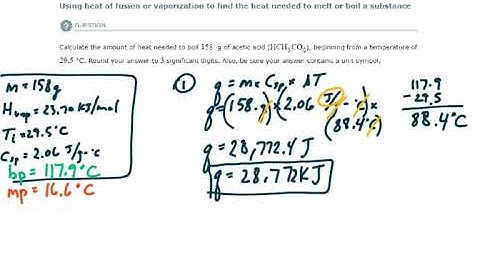 Using heat of fusion or vaporization to find the heat needed to melt or boil a substance
? QUESTION
Calculate the amount of heat needed to boil 158. g of acetic acid (HCH₃CO₂), beginning from a temperature of
29.5 °C. Round your answer to 3 significant digits. Also, be sure your answer contains a unit symbol.
m = 158g
Hvap = 23.70 KJ/mol
Ti = 29.5°C
Csp = 2.06 J/g·°C
bp = 117.9°C
mp = 16.6°C
① q = m × Csp × ΔT
q = (158.g)(2.06 J/g·°C) ×
(88.4°C)
q = 28,772.4 J
q = 28.772KJ
117.9
- 29.5
88.4°C